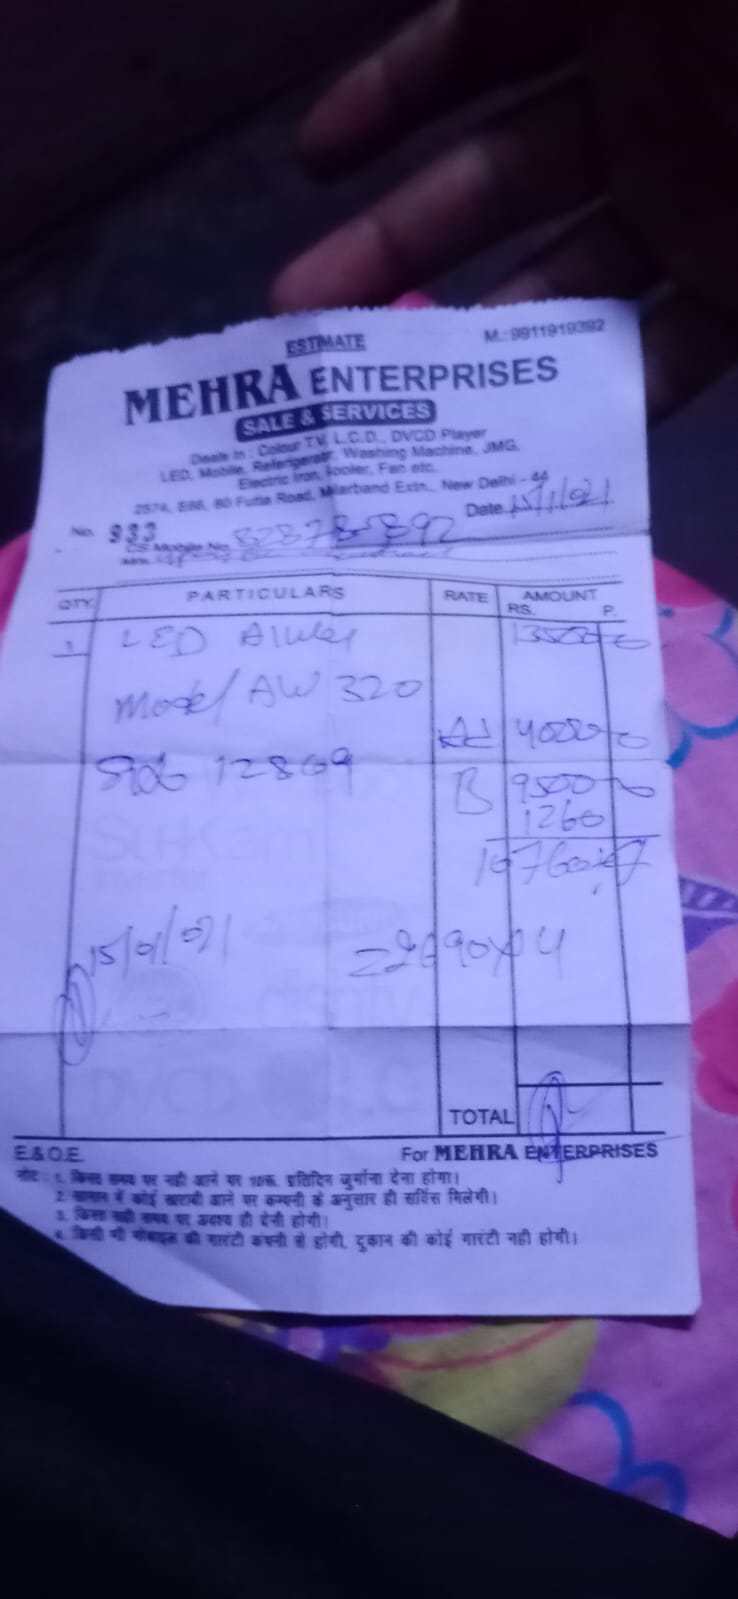 ESTIMATE
M.:9911919392
MEHRA ENTERPRISES
SALE & SERVICES
Deals in : Colour T.V, L.C.D., DVCD Player
LED, Mobile, Refrigerator, Washing Machine, JMG,
Electric Iron, Cooler, Fan etc.
2574, E66, 60 Futta Road, Molarband Extn., New Delhi - 44
No. 933
Date 15/1/021
CS Mobile No.
QTY. PARTICULARS RATE AMOUNT
RS. P.
1 LED 13500
Model AW 320
Ad 4000
12869
B 9500
1260
10760
15/01/021
2690x04
TOTAL
E.& O.E.
For MEHRA ENTERPRISES
नोट : 1. किस्त समय पर नही आने पर 10रू. प्रतिदिन जुर्माना देना होगा।
2. सामान में कोई खराबी आने पर कम्पनी के अनुसार ही सर्विस मिलेगी।
3. किस्त सही समय पर अवश्य ही देनी होगी।
4. किसी भी मोबाइल की गारंटी कंपनी से होगी, दुकान की कोई गारंटी नही होगी।